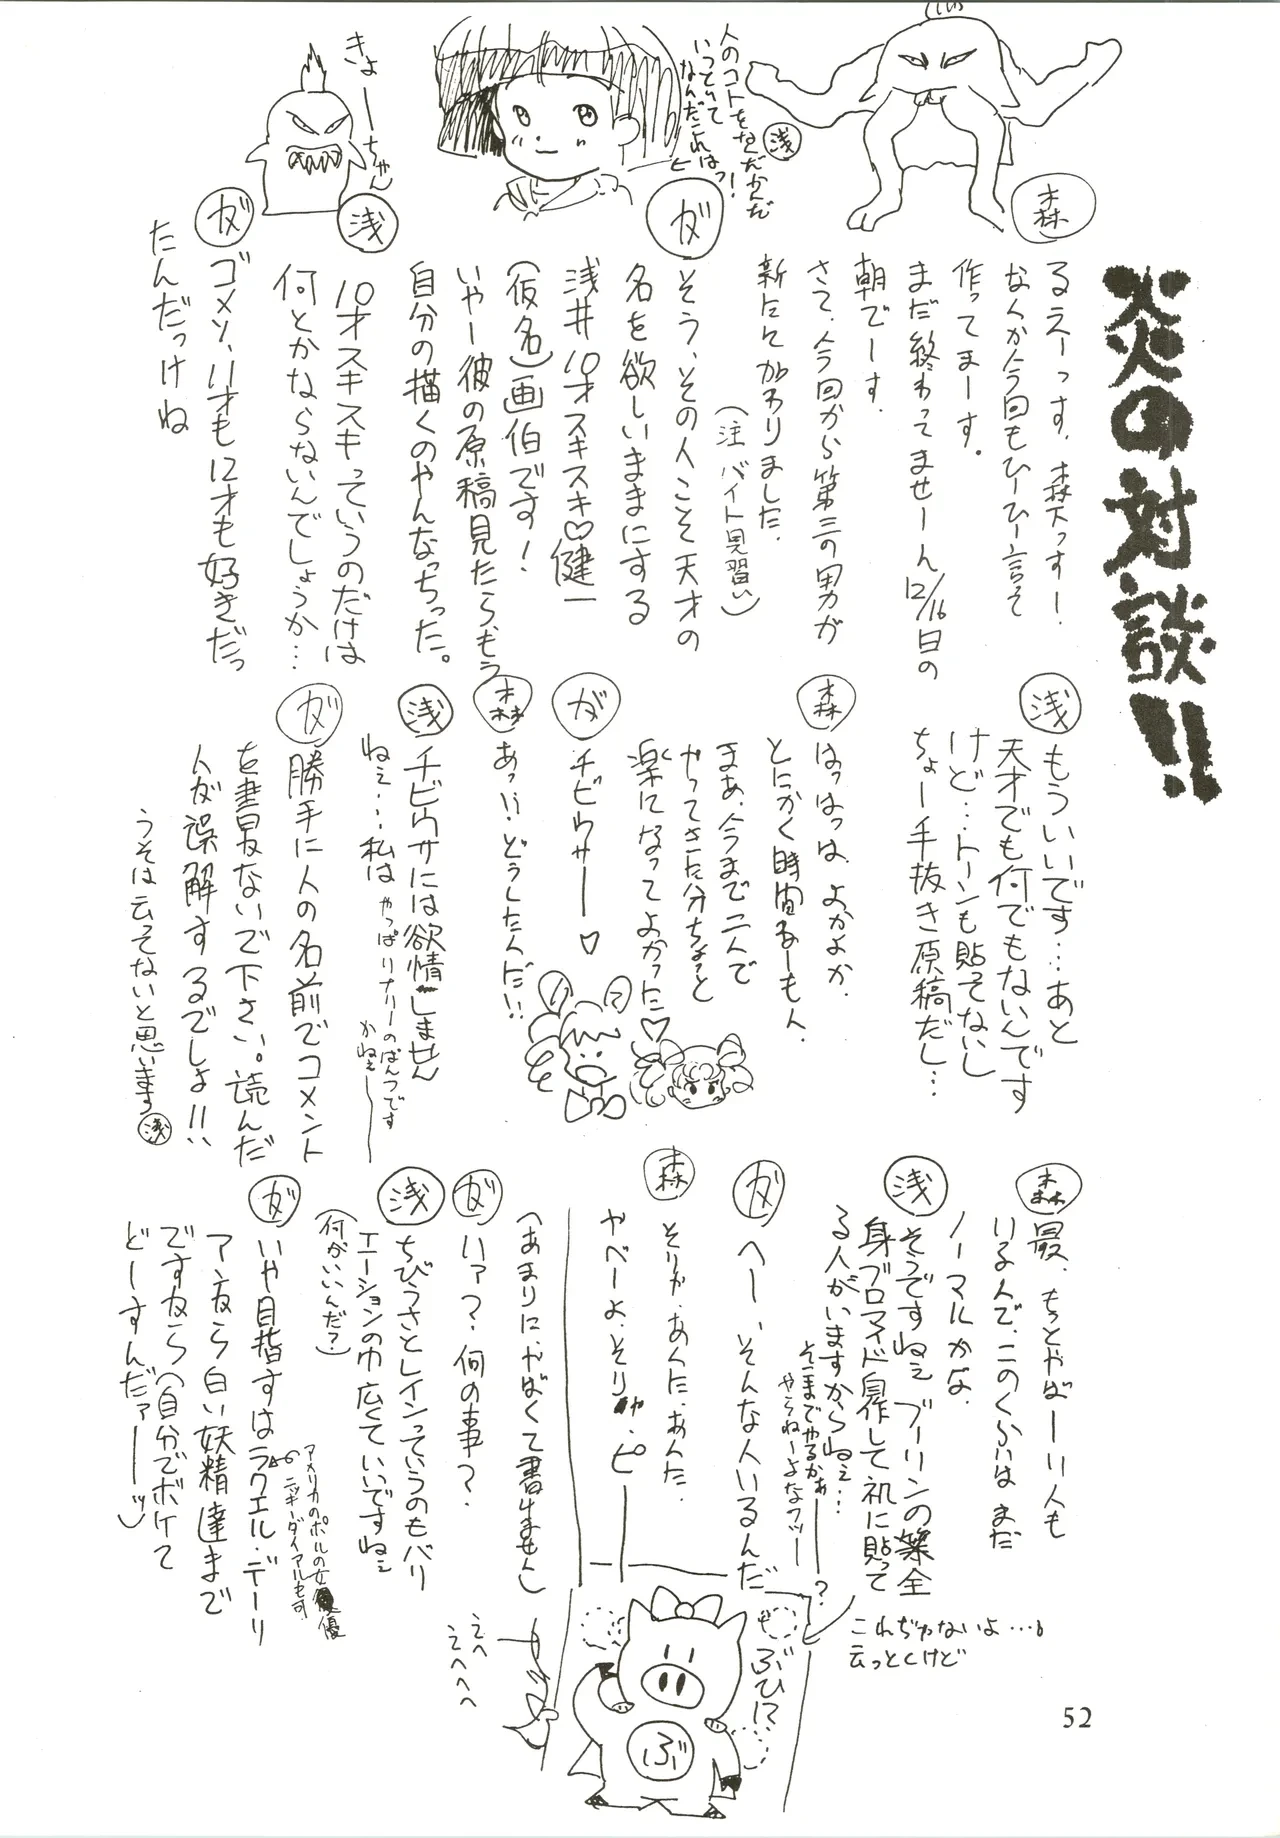 炎の対談!!
森
るえーっす。森でっすー!
なんか今回もひーひー言って
作ってまーす。
まだ終わってませーん 12/16日の
朝でーす。
さて、今回から第三の男が
新たに加わりました。
(注 バイト見習い)
ガ
そう、その人こそ天才の
名を欲しいままにする
浅井10才スキスキ♡健一
(仮名)画伯です!
いやー彼の原稿見たら、もう
自分の描くのやんなっちった。
浅
10才スキスキっていうのだけは
何とかならないんでしょうか…
ガ
ゴメン、11才も12才も好きだっ
たんだっけね
人のコトをなんだかんだ
いっていて
なんだこれはっ!
浅
きよーちゃん
浅
もういいです…あと
天才でも何でもないんです
けど…トーンも貼ってないし
ちょー手抜き原稿だし…
森
はっはっは、よかよか、
とにかく時間ねーもん、
まあ、今まで二人で
やってきた分ちょっと
楽になってよかった♡
ガ
チビウサー♡
森
あっ!!どうした人だ!!
浅
チビウサには欲情しません
ねぇ…私は やっぱりナリーのぱんつです
かねぇ――
ガ
勝手に人の名前でコメント
を書かないで下さい。読んだ
人が誤解するでしょ!!
うそは云ってないと思います 浅
森
最、ちとやばーい人も
いる人で、このくらいは まだ
ノーマルかな
浅
そうですねぇ プーリンの 全
身ブロマイド自作して 机に貼って
る人がいますからねぇ…
そこまでやるかぁ――?
やらねーよなフツー
これぢゃないよ…。
云っとくけど
ガ
へー、そんな人いるんだ
森
そりゃ、あんた、あんた、
やべーよ、そりゃ、ピ――
(あまりに、やばくて書けません)
ガ
いァ?、何の事?
浅
ちびうさとレインっていうのもバリ
エーションの巾広くていいですねぇ
(何がいいんだ?)
ガ
いや目指すはラクエル・デーリ
アンなら白い妖精達まで
ですなら(自分でボケて
どーすんだァ――ッ)
アメリカのポルの女優
ニッキーダイアルも可
えへ
えへへへ
ぶひに
ぶ
52